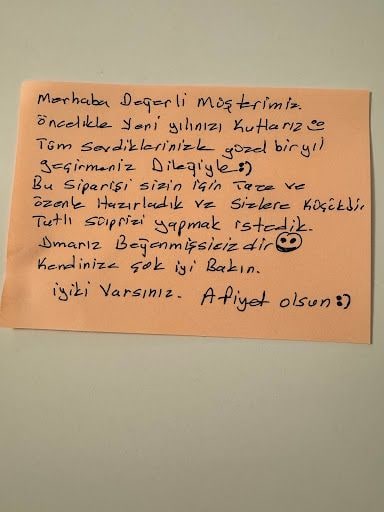 Merhaba Değerli Müşterimiz.
öncelikle Yeni yılınızı Kutlarız
Tüm Sevdiklerinizle güzel bir yıl
geçirmeniz Dileğiyle :)
Bu Siparişi sizin için Taze ve
özenle Hazırladık ve Sizlere Küçükbir
Tatlı Süprizi yapmak istedik.
Umarız Beğenmişsinizdir
Kendinize çok iyi Bakın.
iyiki Varsınız. Afiyet olsun :)